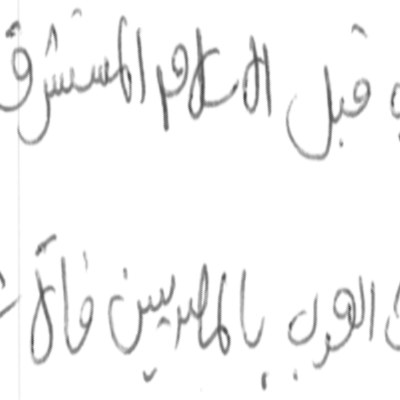 قبل الاعلام المستشرق
العرب بالمصريين فالآ